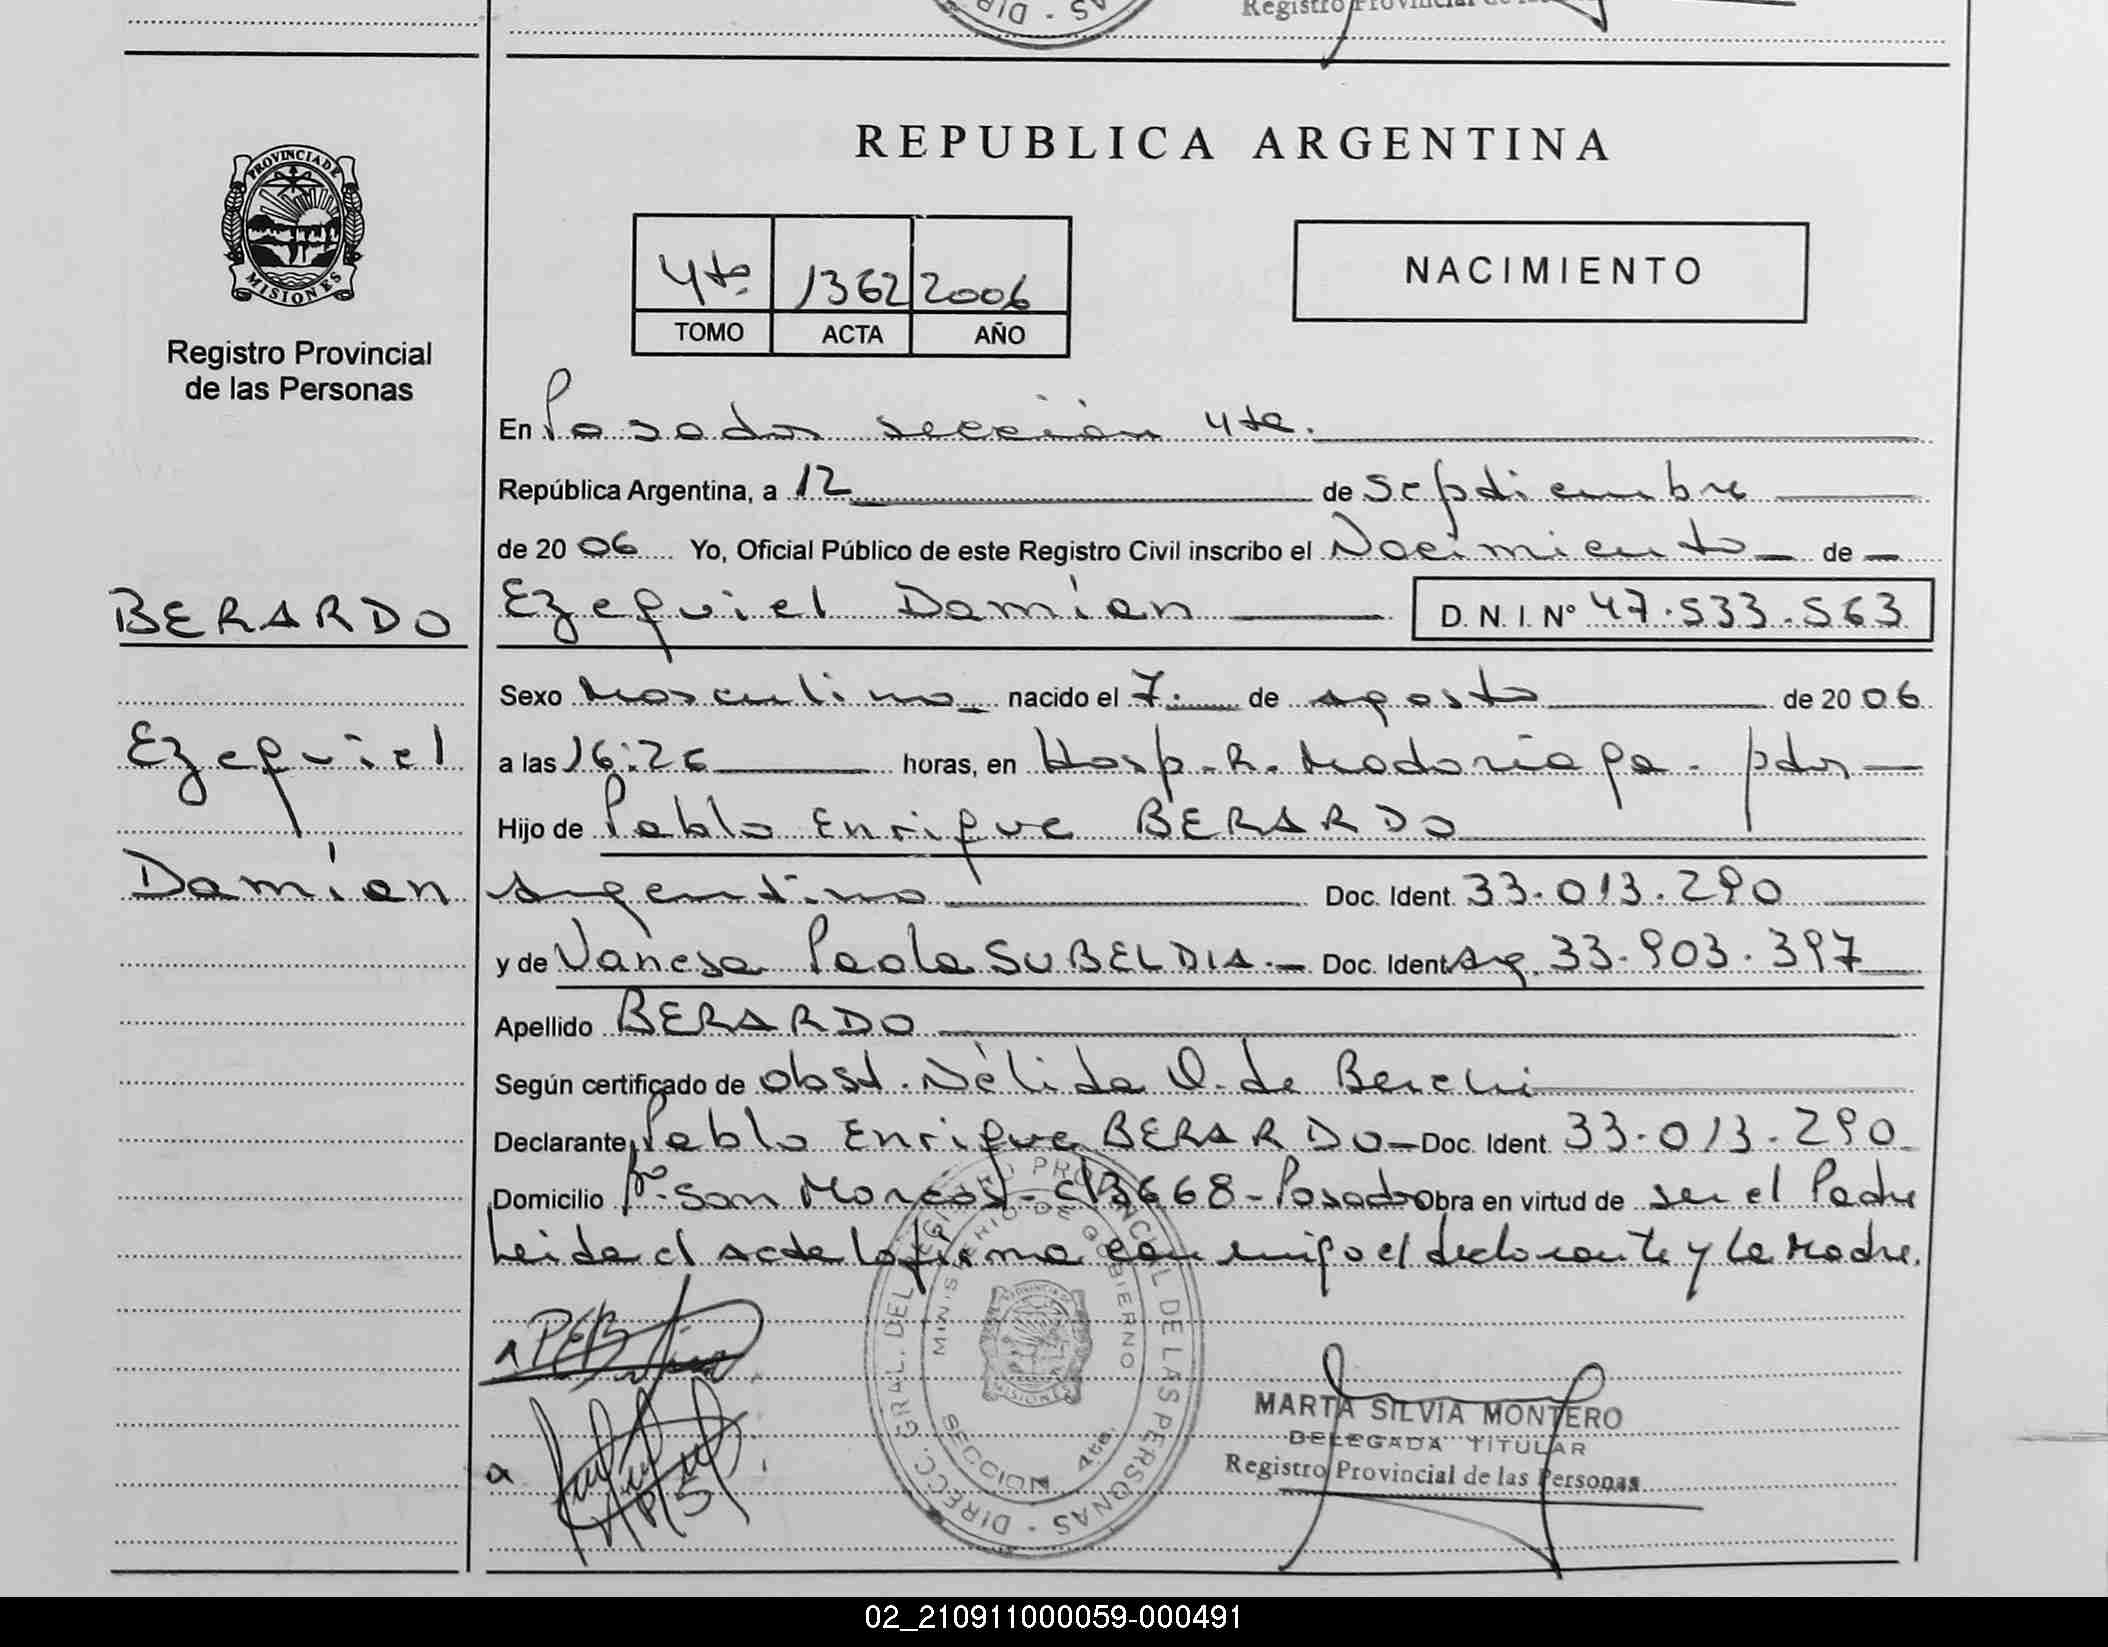 Registro Provincial de las
DIR · S
REPUBLICA ARGENTINA
PROVINCIA DE
MISIONES
Registro Provincial
de las Personas
4to 1362 2006
TOMO ACTA AÑO
NACIMIENTO
En Posadas sección 4ta.
República Argentina, a 12 de septiembre
de 2006 Yo, Oficial Público de este Registro Civil inscribo el Nacimiento de
BERARDO
Ezequiel Damían D. N. I. Nº 47.533.563
Sexo Masculino nacido el 7. de agosto de 2006
Ezequiel
a las 16:26 horas, en Hosp. R. Madariaga. pdas
Hijo de Pablo Enrique BERARDO
Damían
Argentino Doc. Ident. 33.013.290
y de Vanesa Paola SUBELDIA. Doc. Ident. Arg. 33.903.397
Apellido BERARDO
Según certificado de obst. Nélida O. de
Declarante Pablo Enrique BERARDO Doc. Ident. 33.013.290
Domicilio Bº. San Marcos - C/B668 - Posadas Obra en virtud de ser el Padre
Leida el acta la firma conmigo el declarante y la Madre.
PEB
DIRECC. GRAL. DEL REGISTRO PROVINCIAL DE LAS PERSONAS
MINISTERIO DE GOBIERNO
PROVINCIA DE
MISIONES
SECCION 4ta.
MARTA SILVIA MONTERO
DELEGADA TITULAR
Registro Provincial de las Personas
a
02_210911000059-000491